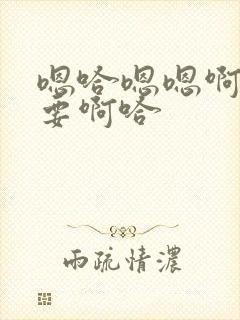 嗯哈嗯嗯啊
要啊哈
雨疏情浓